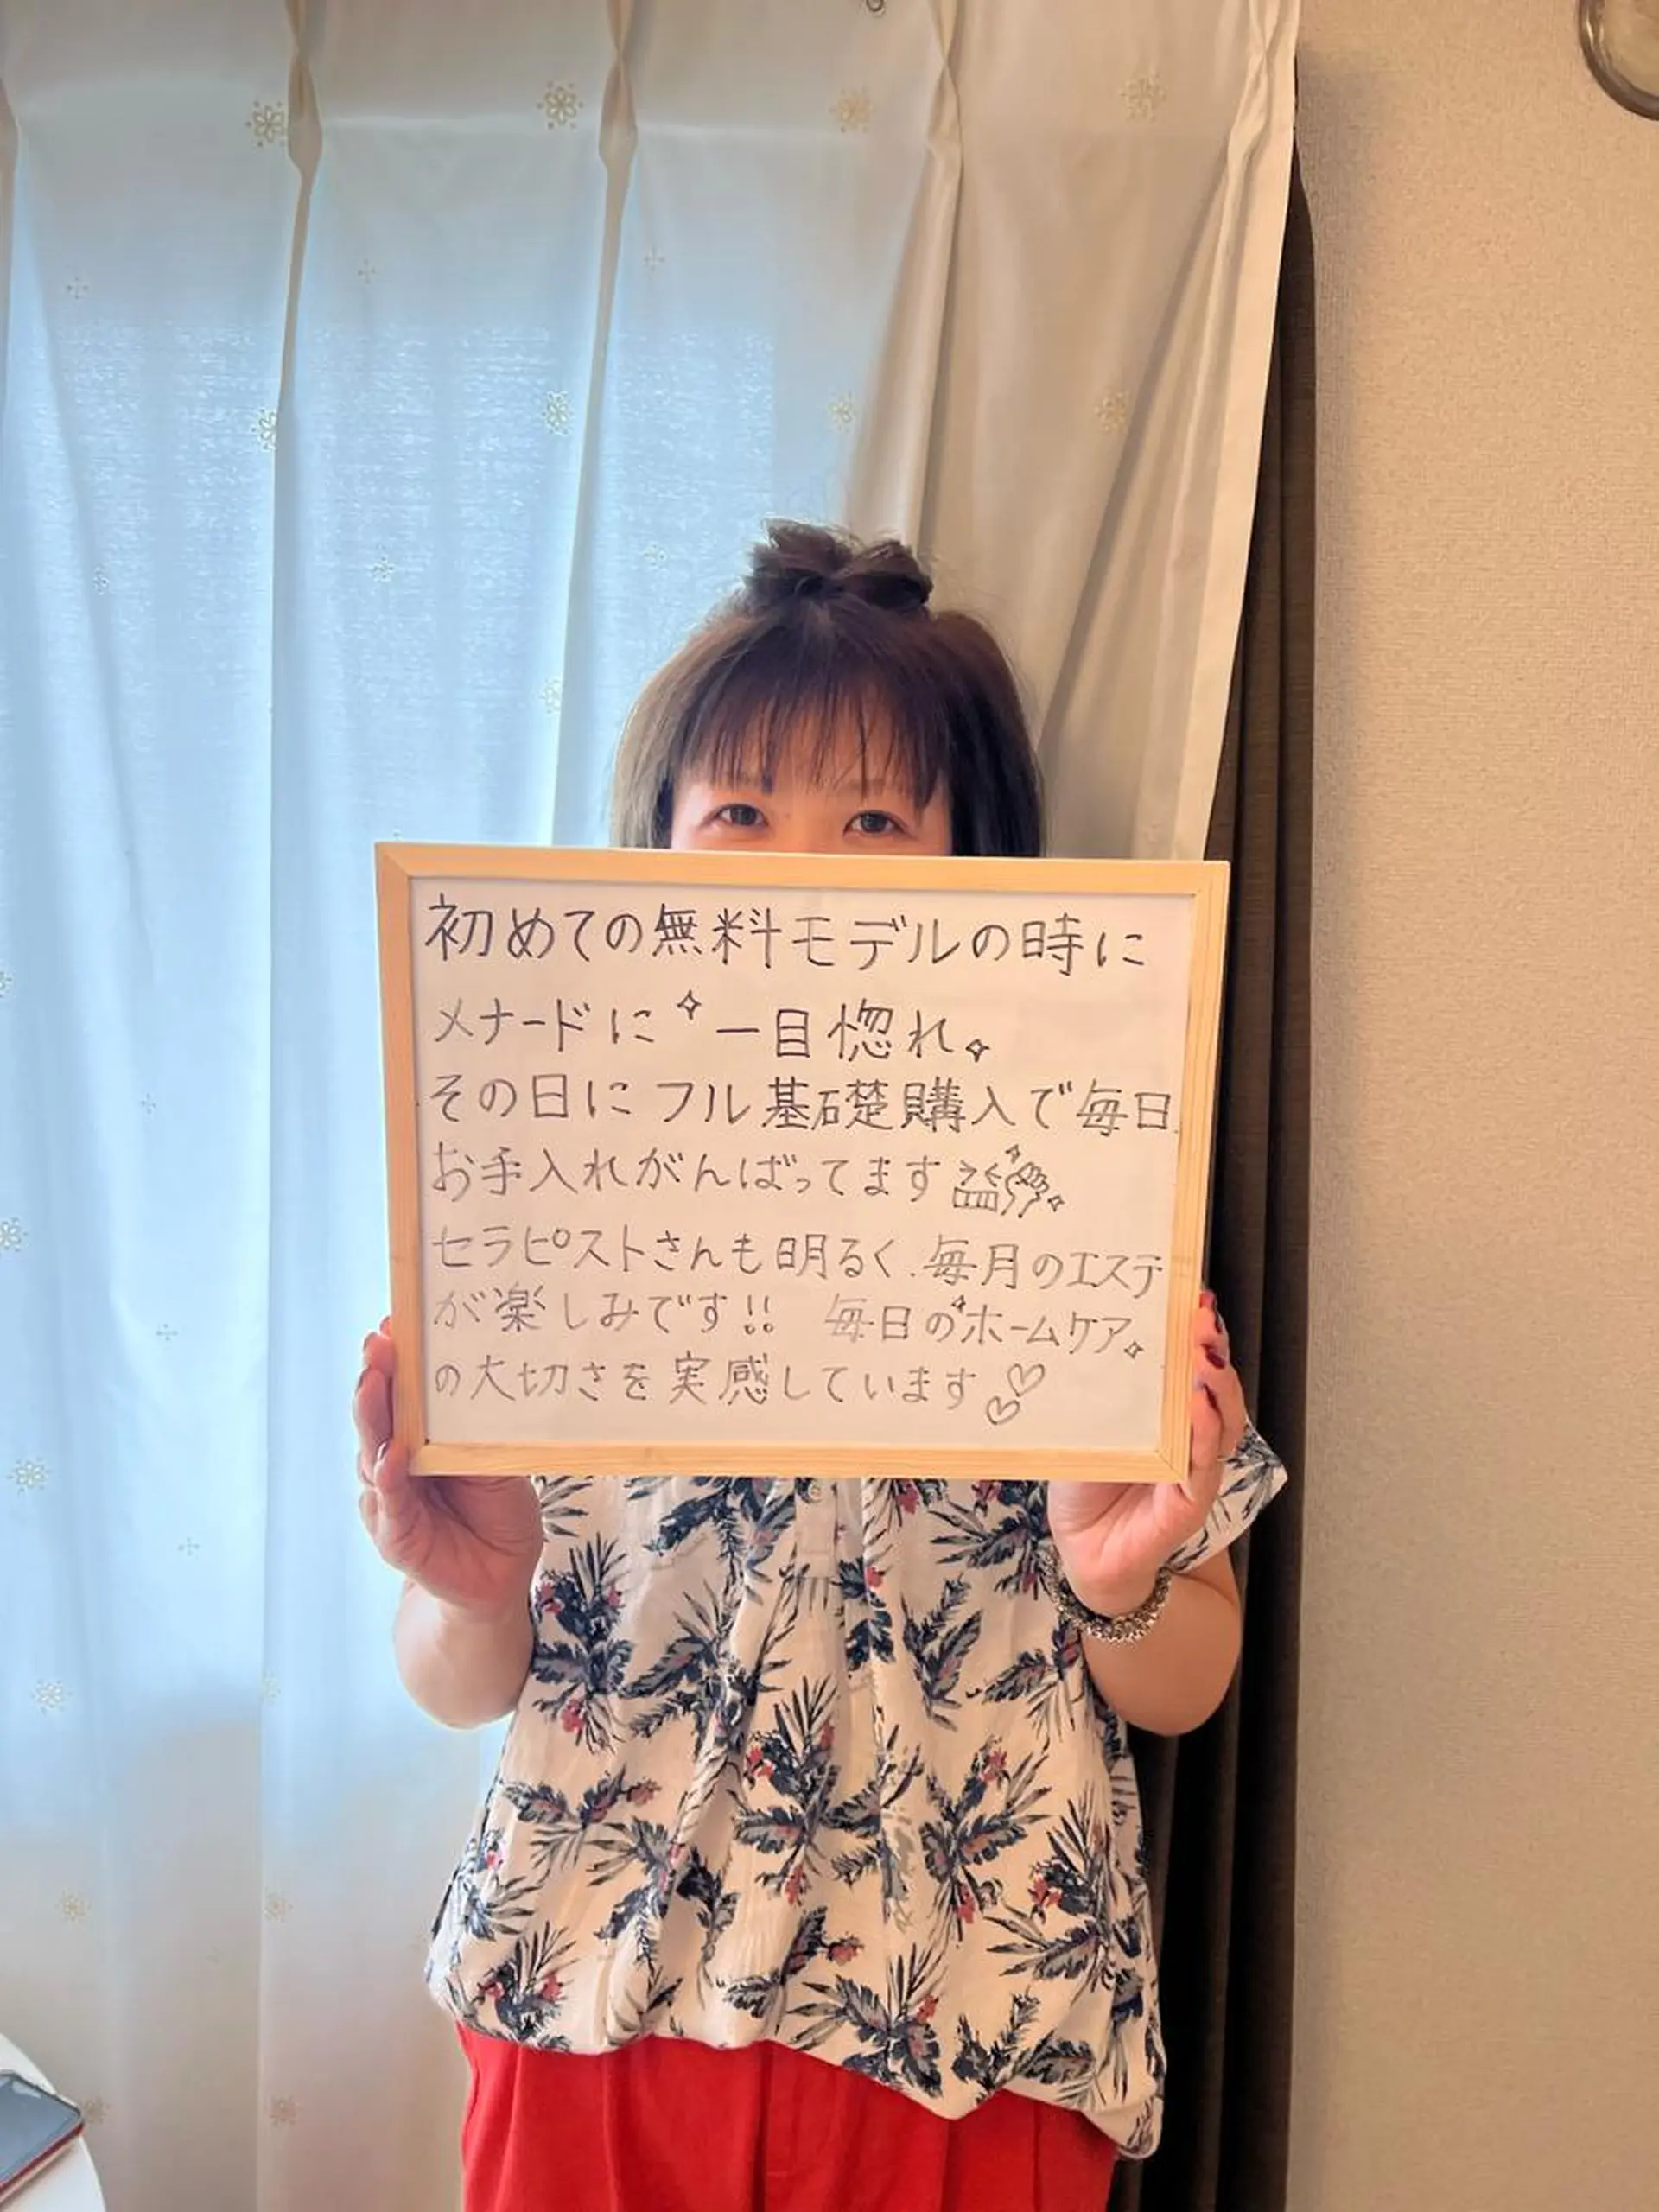 初めての無料モデルの時に
メナードに一目惚れ。
その日にフル基礎購入で毎日
お手入れがんばってます
セラピストさんも明るく、毎月のエステ
が楽しみです!! 毎日のホームケア
の大切さを実感しています♡♡